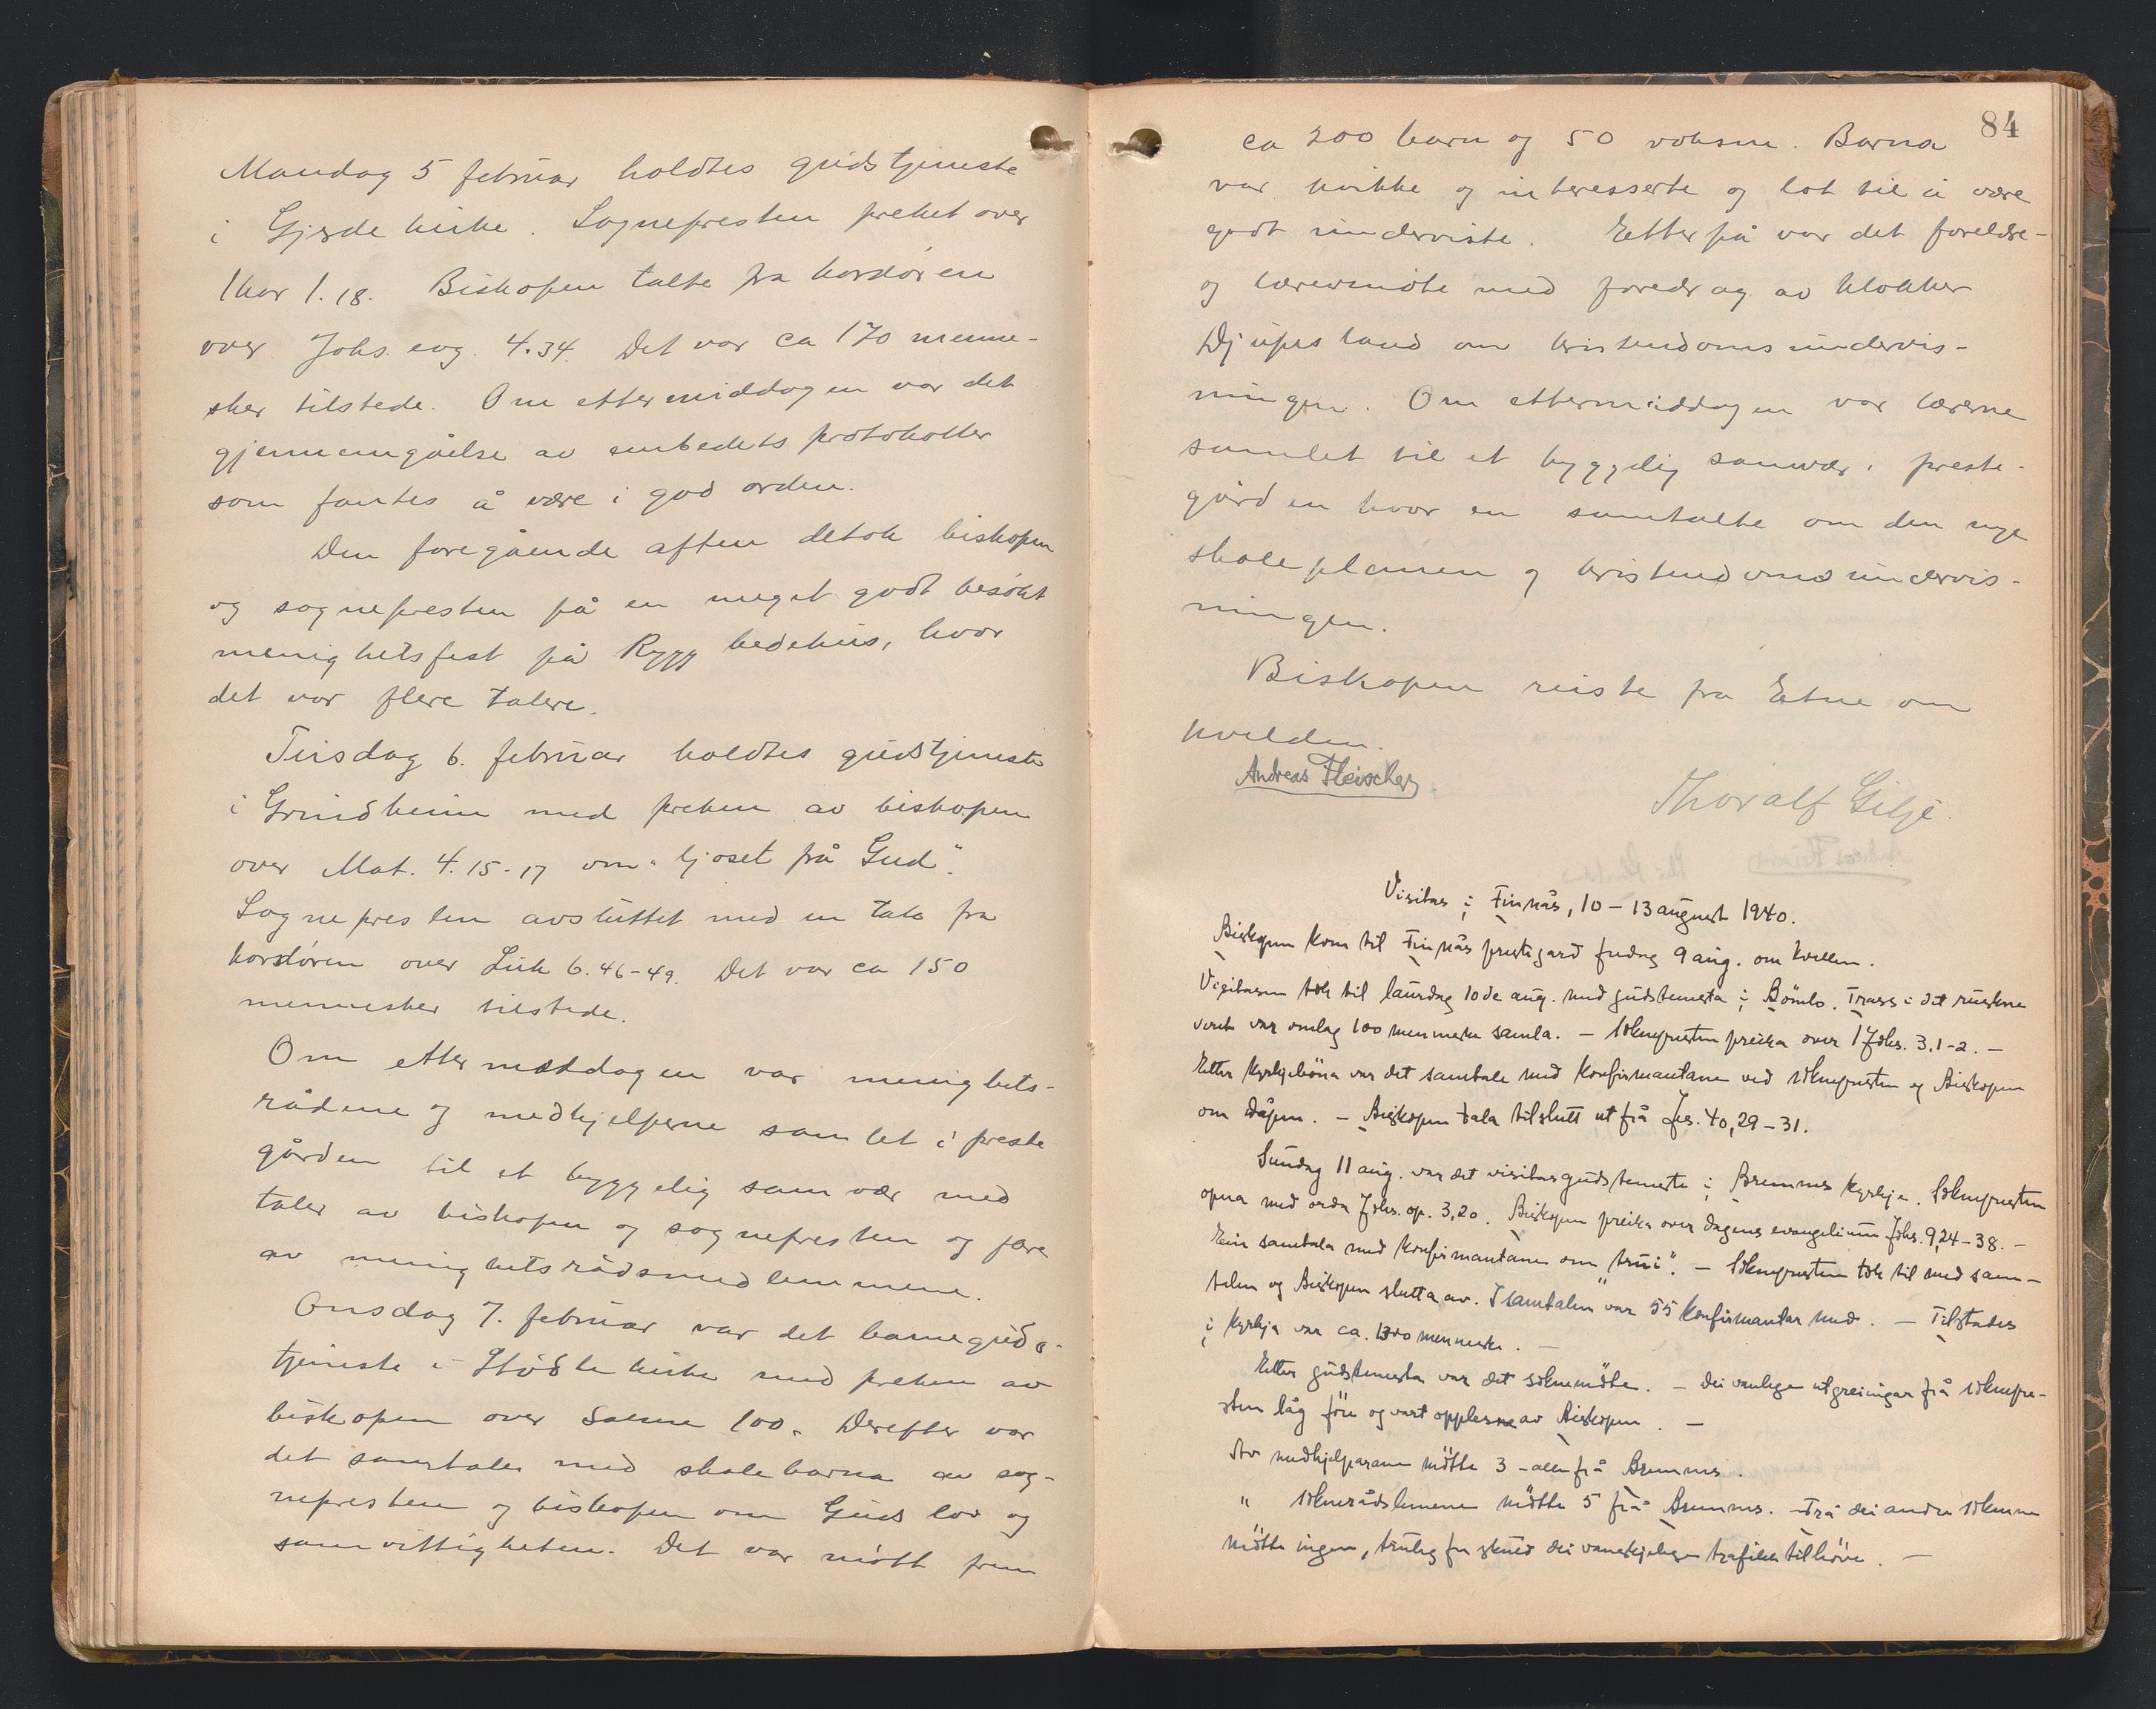 Mandag 5 februar holdtes gudstjeneste
i Gjerde kirke. Sognepresten preket over
1 kor 1.18. Biskopen talte fra kordøren
over Johs. evg. 4.34. Det var ca 170 menne-
sker tilstede. Om ettermiddagen var det
gjennemgåelse av embedets protokoller
som fantes å være i god orden.
Den foregående aften deltok biskopen
og sognepresten på en meget godt besøkt
menighetsfest på Rygg bedehus, hvor
det var flere talere.
Tirsdag 6. februar holdtes gudstjeneste
i Grindheim med preken av biskopen
over Mat. 4.15-17 om "ljoset frå Gud".
Sognepresten avsluttet med en tale fra
kordøren over Luk 6.46-49. Det var ca 150
mennesker tilstede.
Om ettermiddagen var menighets-
rådene og medhjelperne samlet i preste
gården til et hyggelig samvær med
taler av biskopen og sognepresten og flere
av menighetsrådsmedlemmene.
Onsdag 7. februar var det barneguds-
tjeneste i Stødle kirke med preken av
biskopen over Salme 100. Derefter var
det samtaler med skolebarna av sog-
nepresten og biskopen om Guds lov og
samvittigheten. Det var møtt frem
84
ca 200 barn og 50 voksne. Barna
var kvikke og interesserte og lot til å være
godt underviste. Etterpå var det foreldre-
og lærermøte med foredrag av klokker
Djupesland om kristendomsundervis-
ningen. Om ettermiddagen var lærerne
samlet til et hyggelig samvær i preste-
gården hvor en samtalte om den nye
skoleplanen og kristendomsundervis-
ningen.
Biskopen reiste fra Etne om
kvelden.
Andreas Fleischer.
Thoralf Gilje.
Visitas i Finnås, 10 – 13 august 1940.
Biskopen kom til Finnås prestegard fredag 9 aug. om kvellen.
Visitasen tok til laurdag 10de aug. med gudstenesta i Bømlo. Trass i det ruskne
veret var omlag 100 menneske samla. – Soknepresten preika over 1 Johs. 3,1-2. –
Etter kyrkjebøna var det samtale med konfirmantane ved soknepresten og Biskopen
om dåpen. – Biskopen tala tilslutt ut frå Jes. 40,29–31.
Sundag 11 aug. var det visitasgudsteneste i Bremnes kyrkje. Soknepresten
opna med orda Johs. op. 3,20. Biskopen preika over dagens evangelium Johs. 9,24–38. –
Ein samtala med konfirmantane om "trui". – Soknepresten tok til med sam-
talen og Biskopen slutta av. I samtalen var 55 konfirmantar med. – Tilstades
i kyrkja var ca. 1300 menneske. –
Etter gudstenesta var det soknemøte. – Dei vanlege utgreiingar frå soknepre-
sten låg føre og vart opplesne av Biskopen. –
Av medhjelparane møtte 3 – alle frå Bremnes.
" soknerådslemene møtte 5 frå Bremnes. – Frå dei andre soknene
møtte ingen, truleg for skuld dei vanskjelege trafiktilhøve. –